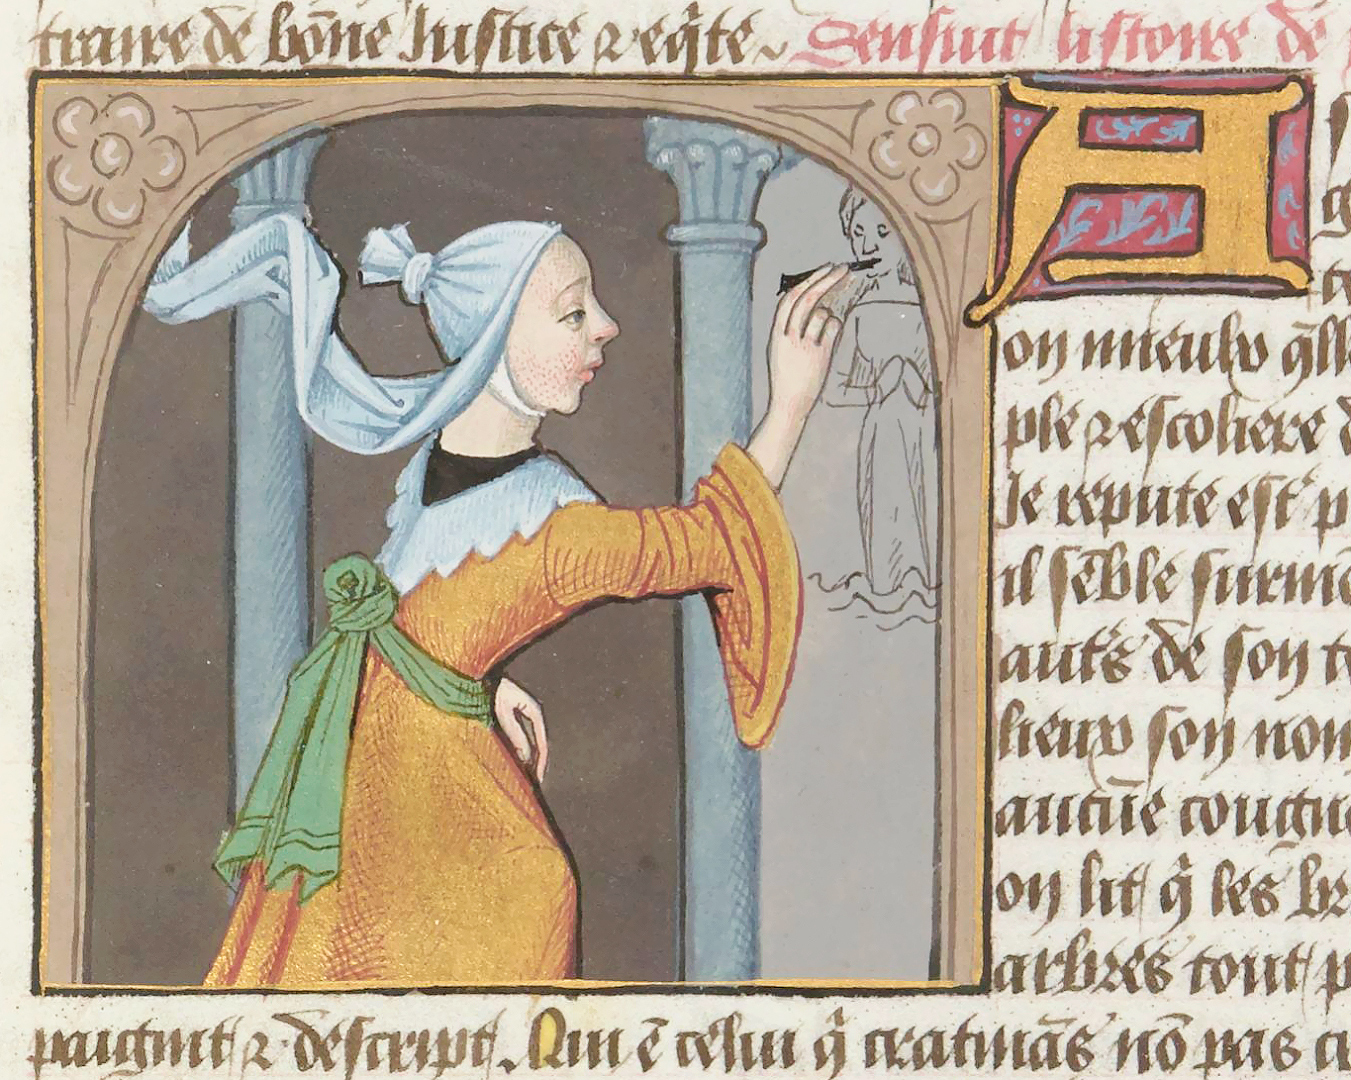 traire de bōne Justice ⁊ eq̄te Sensuit listoire de
A
on mieulx q̄lle
ple ⁊ escoliere d
Je repute est' p
il sēble surmō
aut's de son te
lieux son nom
aucūe congn
on lit q̄ les br
arbres tout p
paignit ⁊ descript. Qui ē celui q̄ cratinās nō pas